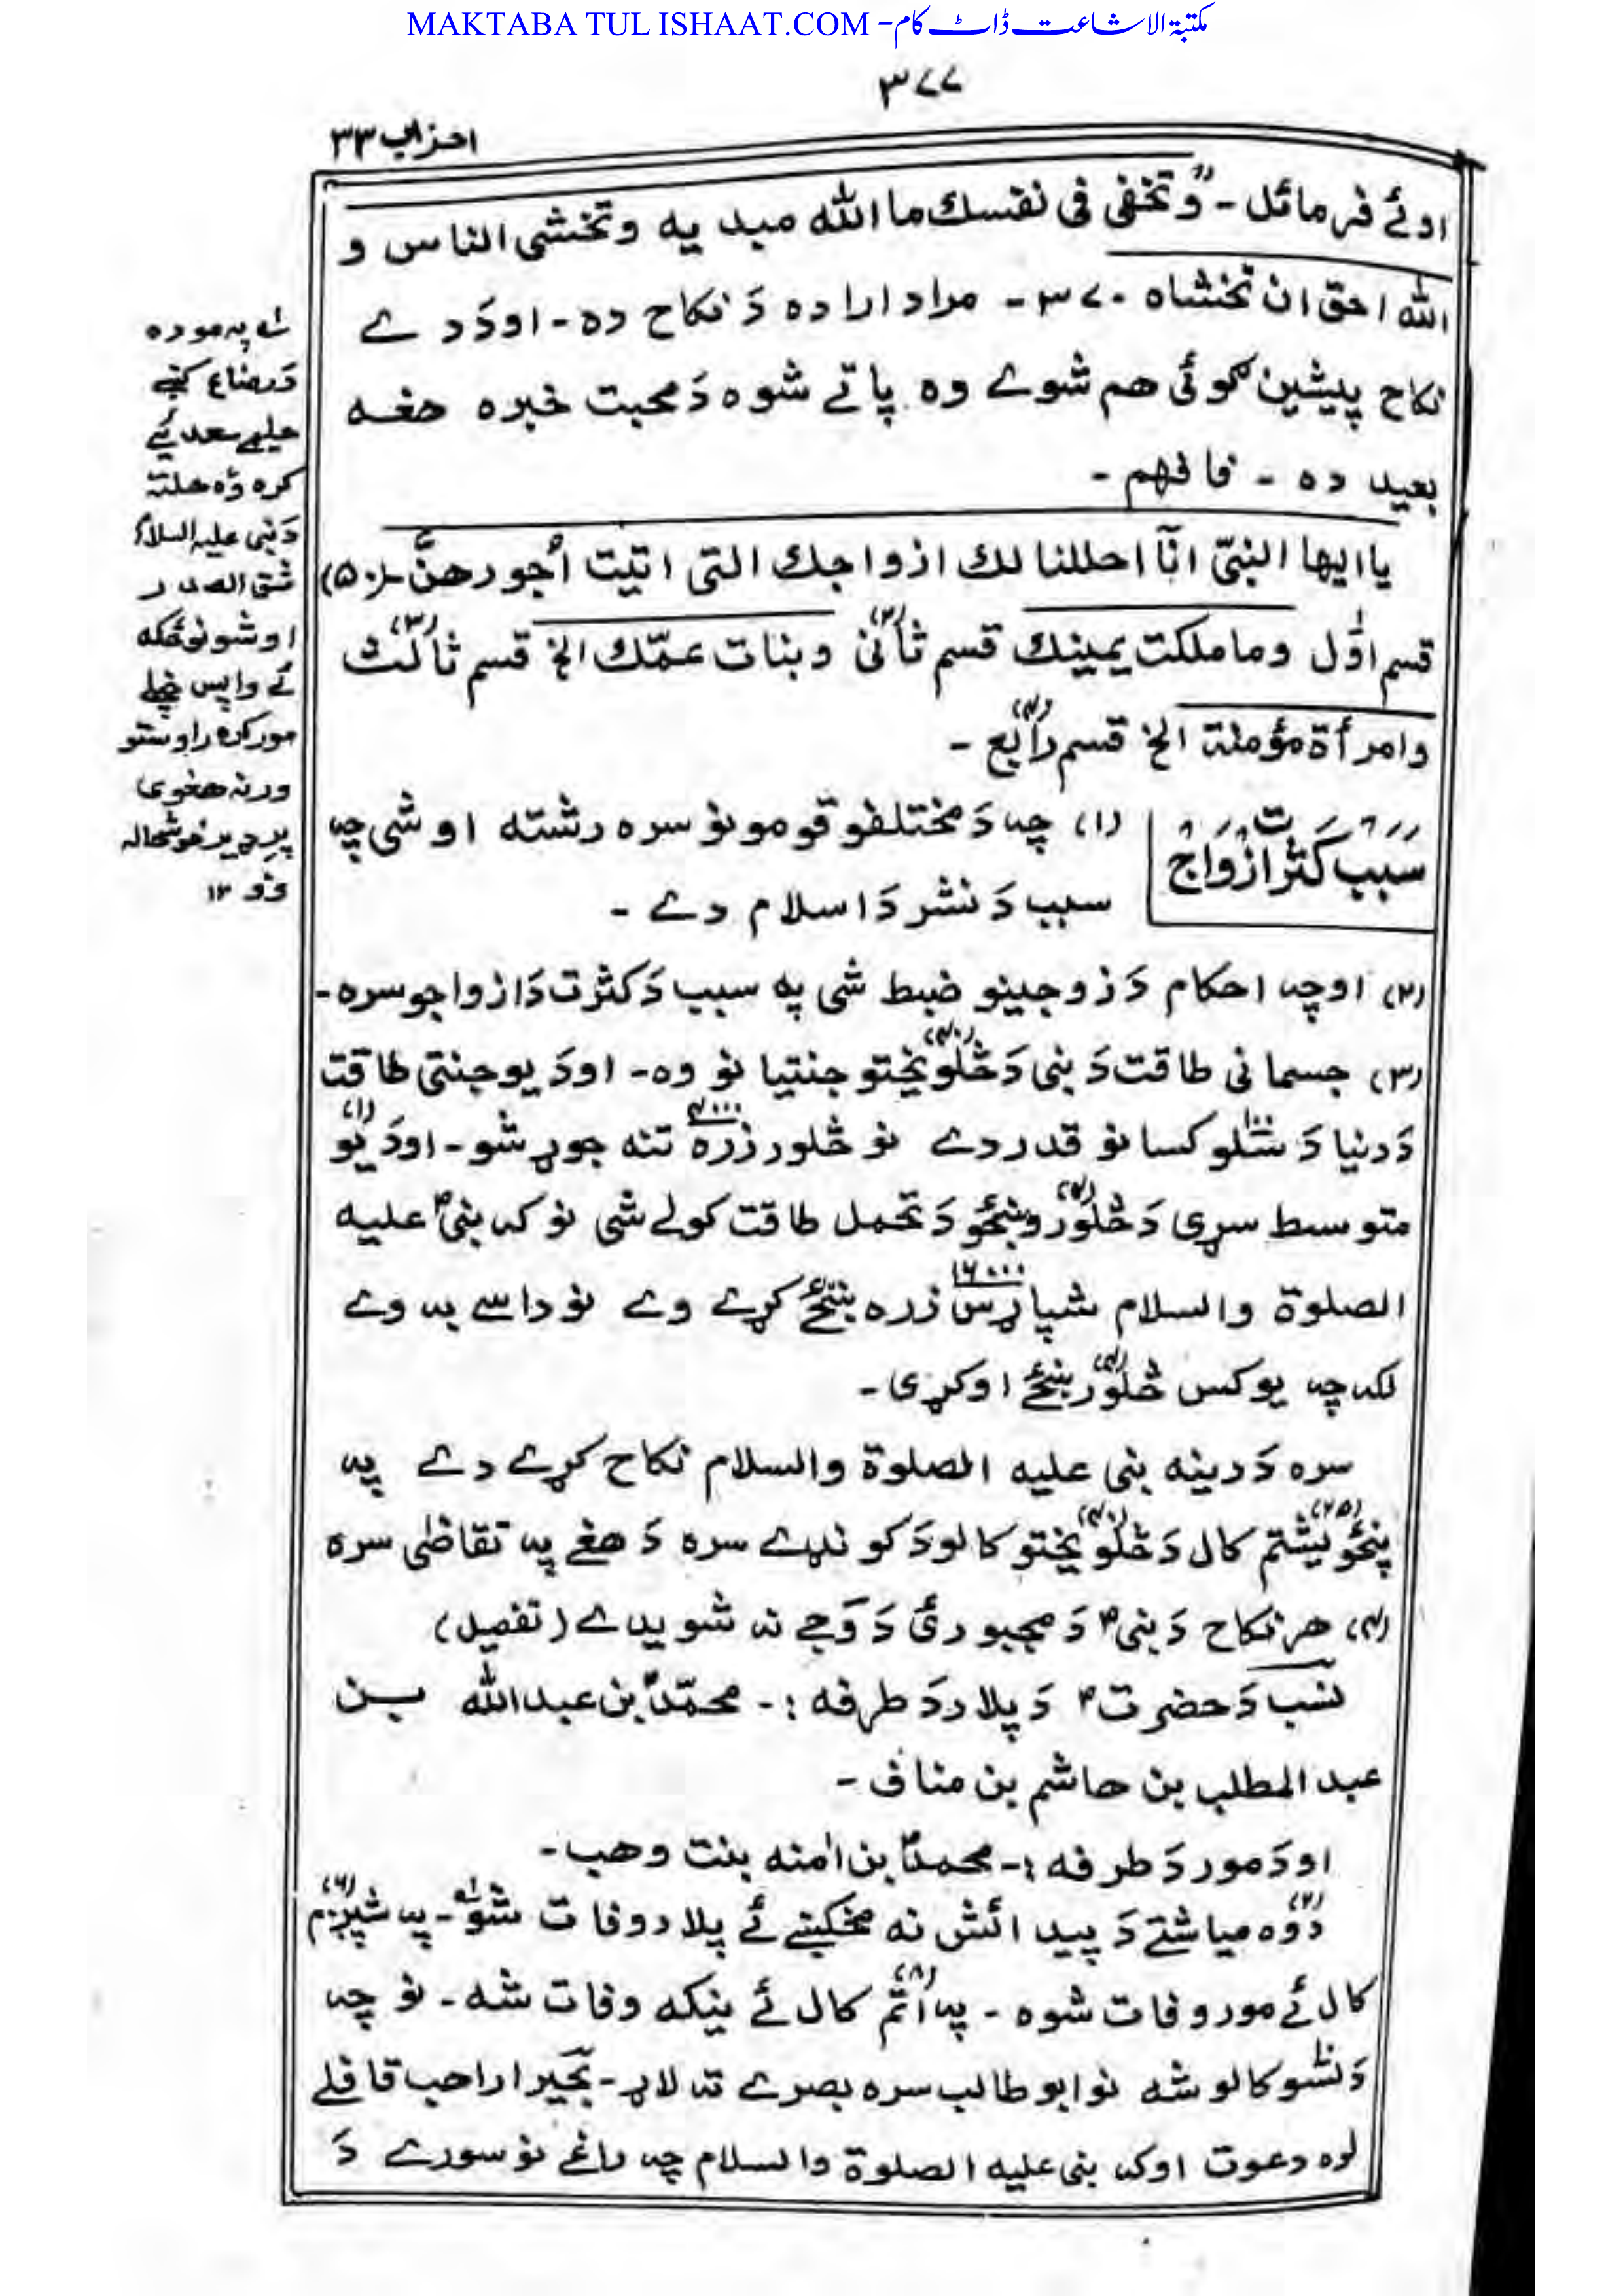 MAKTABA TUL ISHAAT.COM - مکتبۃ الاشاعت ڈاٹ کام
۳۷۷
احزاب ۳۳
اوئے فرمائل - "وتخفی فی نفسك ما الله مبد یه وتخشی الناس و
الله احق ان تخشاه ۳۷۰ - مراد اراده دَ نکاح ده - اودَ دے
نکاح پیشین گوئی هم شوے وه پاتے شوه دَ محبت خبره هغه
بعید ده - فافهم -
یاایها النبیّ انّآ احللنا لك ازواجك التی اتیت اُجورهنّ - (۵۰)
قسم اوّل وما ملکت یمینك قسم ثانی (۲) وبنات عمّك الخ قسم ثالث (۳)
وامرأة مؤمنة الخ قسم رابع (۴) -
سَبَب کَثرَتِ اَزْوَاج
(۱) چه دَ مختلفو قومونو سره رشته اوشی چه
سبب دَ نشر دَ اسلام دے -
(۲) اوچه احکام دَ زوجینو ضبط شی په سبب دَ کثرت دَ ازواجو سره -
(۳) جسمانی طاقت دَ نبی دَ څلویختو (۴۰) جنتیانو وه - اودَ یو جنتی طاقت
دَ دنیا دَ سَلو ۱۰۰ کسانو قدر دے نو څلور زره ۴۰۰۰ تنه جوړ شو - اودَ یو (۱)
متوسط سړی دَ څلور (۴) ونبځو دَ تحمل طاقت کولے شی نو که نبیؐ علیه
الصلوة والسلام شپاړس زره ۱۶۰۰۰ بنځے کړے وے نو داسے به وے
لکه چه یوکس څلور (۴) بنځے اوکړی -
سره دَ دینه نبی علیه الصلوة والسلام نکاح کړے دے په
پنځویشتم (۲۵) کال دَ څلویختو (۴۰) کالو دَ کونډے سره دَ هغے په تقاضی سره
(۴) هر نکاح دَ نبیؐ دَ مجبورئ دَ وَجے نه شویدے (تفصیل)
نسب دَ حضرتؐ دَ پلار دَ طرفه :- محمّدؐ بن عبدالله بن
عبدالمطلب بن هاشم بن مناف -
اودَ مور دَ طرفه :- محمدؐ بن اٰمنه بنت وهب -
دوه (۲) میاشتے دَ پیدائش نه مخکښے ئے پلار وفات شو - په شپږم (۶)
کال ئے مور وفات شوه - په اتم (۸) کال ئے نیکه وفات شه - نو چه
دَ لسو ۱۰ کالو شه نو ابوطالب سره بصرے ته لاړ - بَحَیرا راهب قافلے
لره دعوت اوکه نبی علیه الصلوة والسلام چه راغے نو سورے دَ
په موده
دَ رضاع کښے
حلیمے سعدیے
کره وُه هلته
دَ نبی علیه السلام
شق الصدر
اوشو نو ځکه
ئے واپس خپلے
مور کره راوستو
ورنه هغوی
پرډیر خوشحاله
وو ۱۲